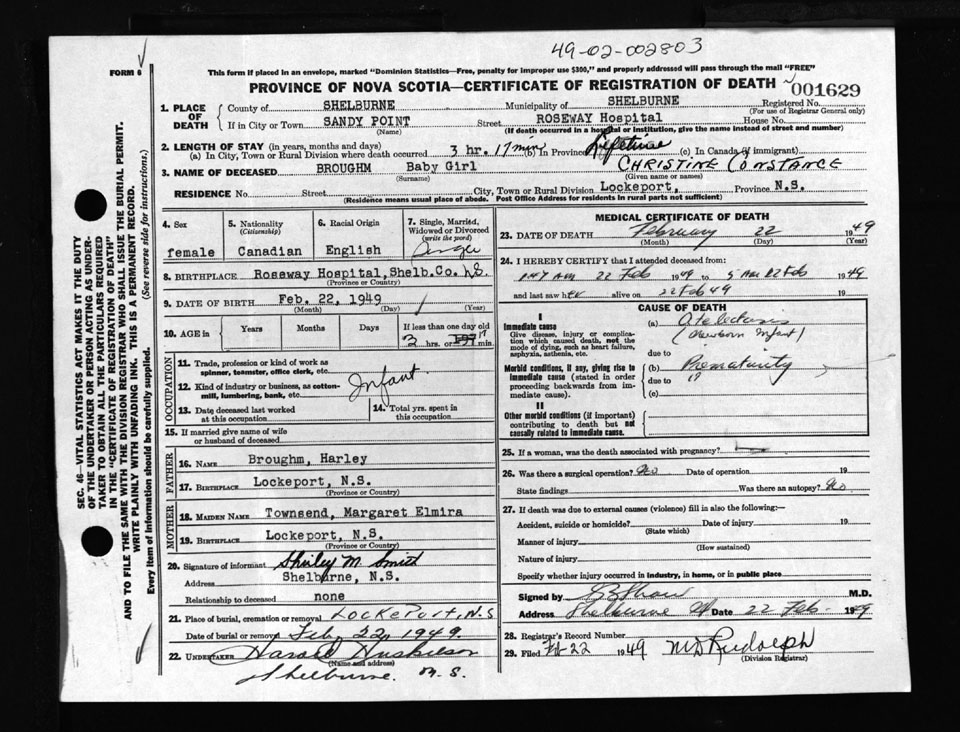 49-02-002803
FORM 6
This form if placed in an envelope, marked "Dominion Statistics—Free, penalty for improper use $300," and properly addressed will pass through the mail "FREE"
PROVINCE OF NOVA SCOTIA—CERTIFICATE OF REGISTRATION OF DEATH
001629
1. PLACE OF DEATH
County of SHELBURNE Municipality of SHELBURNE Registered No.
(For use of Registrar General only)
If in City or Town SANDY POINT Street ROSEWAY Hospital House No.
(Name) (If death occurred in a hospital or institution, give the name instead of street and number)
2. LENGTH OF STAY (in years, months and days)
(a) In City, Town or Rural Division where death occurred 3 hr. 17 min (b) In Province Lifetime (c) In Canada (if immigrant)
3. NAME OF DECEASED BROUGHM Baby Girl CHRISTINE CONSTANCE
(Surname) (Given name or names)
RESIDENCE No. Street City, Town or Rural Division Lockeport, Province N.S.
(Residence means usual place of abode. Post Office Address for residents in rural parts not sufficient)
4. Sex
female
5. Nationality
(Citizenship)
Canadian
6. Racial Origin
English
7. Single, Married, Widowed or Divorced
(write the word)
Single
8. BIRTHPLACE Roseway Hospital, Shelb.Co. N.S.
(Province or Country)
9. DATE OF BIRTH Feb. 22, 1949
(Month) (Day) (Year)
10. AGE in Years Months Days If less than one day old
3 hrs. or 17 min.
OCCUPATION
11. Trade, profession or kind of work as spinner, teamster, office clerk, etc.
12. Kind of industry or business, as cotton-mill, lumbering, bank, etc.
Infant
13. Date deceased last worked at this occupation
14. Total yrs. spent in this occupation
15. If married give name of wife or husband of deceased
FATHER
16. NAME Broughm, Harley
17. BIRTHPLACE Lockeport, N.S.
(Province or Country)
MOTHER
18. MAIDEN NAME Townsend, Margaret Elmira
19. BIRTHPLACE Lockeport, N.S.
(Province or Country)
20. Signature of informant Shirley M. Smith
Address Shelburne, N.S.
Relationship to deceased none
21. Place of burial, cremation or removal LOCKEPORT, N.S
Date of burial or removal Feb 22, 1949.
22. UNDERTAKER Harold Huskilson
(Name and address)
Shelburne. N.S.
MEDICAL CERTIFICATE OF DEATH
23. DATE OF DEATH February 22 1949
(Month) (Day) (Year)
24. I HEREBY CERTIFY that I attended deceased from:
1:47 AM 22 Feb 1949 to 5 AM 22 Feb 1949
and last saw her alive on 22 Feb 49
CAUSE OF DEATH
I
Immediate cause
Give disease, injury or complication which caused death, not the mode of dying, such as heart failure, asphyxia, asthenia, etc.
(a) Atelectasis
(Newborn Infant)
due to
Morbid conditions, if any, giving rise to immediate cause (stated in order proceeding backwards from immediate cause).
(b) Prematurity
due to
(c)
II
Other morbid conditions (if important) contributing to death but not causally related to immediate cause.
25. If a woman, was the death associated with pregnancy?
26. Was there a surgical operation? No Date of operation 19
State findings Was there an autopsy? No
27. If death was due to external causes (violence) fill in also the following:—
Accident, suicide or homicide? Date of injury 19
(State which)
Manner of injury
(How sustained)
Nature of injury
Specify whether injury occurred in industry, in home, or in public place
Signed by M.D.
Address Shelburne NS Date 22 Feb- 1949
28. Registrar's Record Number
29. Filed Feb 22 1949 M D Rudolph
(Division Registrar)
SEC. 46—VITAL STATISTICS ACT MAKES IT THE DUTY
OF THE UNDERTAKER OR PERSON ACTING AS UNDER-
TAKER TO OBTAIN ALL THE PARTICULARS REQUIRED
IN THE "CERTIFICATE OF REGISTRATION OF DEATH"
AND TO FILE THE SAME WITH THE DIVISION REGISTRAR WHO SHALL ISSUE THE BURIAL PERMIT.
WRITE PLAINLY WITH UNFADING INK. THIS IS A PERMANENT RECORD.
Every item of information should be carefully supplied. (See reverse side for instructions.)